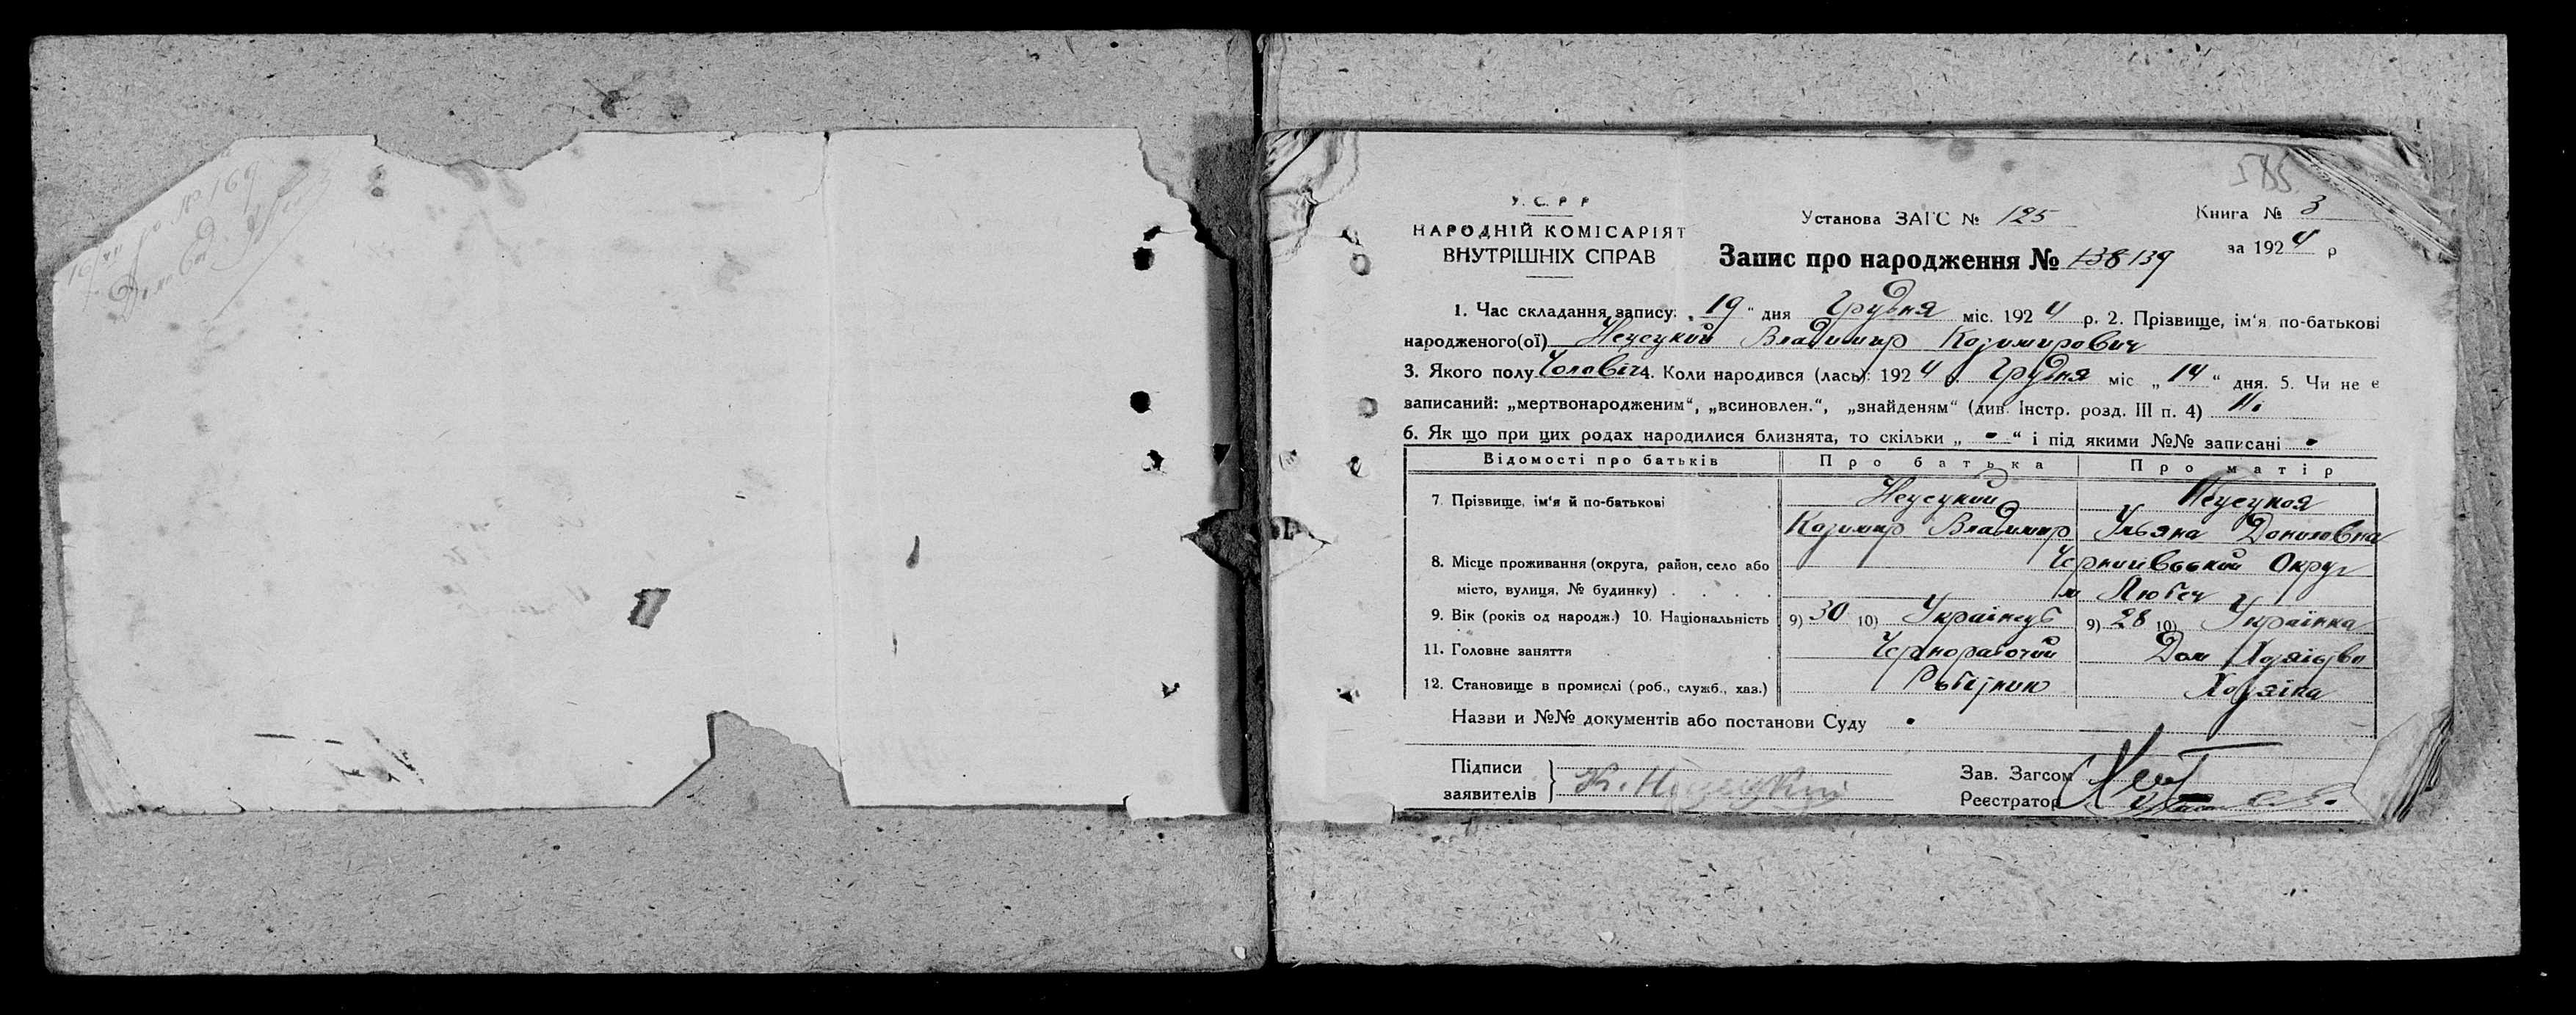 № 169
585
У. С. Р. Р
НАРОДНІЙ КОМІСАРІЯТ
ВНУТРІШНІХ СПРАВ
Установа ЗАГС № 125
Книга № 3
Запис про народження № 138 139
за 1924 р
1. Час складання запису: „19“ дня Грудня міс. 1924 р. 2. Прізвище, ім‘я по-батькові
народженого(ої) Нецецкий Владимир Козимирович
3. Якого полу Чоловіч 4. Коли народився (лась): 1924 р. Грудня міс „14“ дня. 5. Чи не є
записаний: „мертвонародженим“, „всиновлен.“, „знайденям“ (див. Інстр. розд. III п. 4) Ні
6. Як що при цих родах народилися близнята, то скільки „ - “ і під якими №№ записані -
Відомості про батьків Про батька Про матір
7. Прізвище, ім‘я й по-батькові Нецецкий Нецецкая
Козимир Владимир Ульяна Даниловна
8. Місце проживання (округа, район, село або Чернигівський Округ
місто, вулиця, № будинку) . . . . м Любеч
9. Вік (років од народж.) 10. Національність 9) 30 10) Українець 9) 28 10) Українка
11. Головне заняття Чернорабочий Дом Хозяйство
12. Становище в промислі (роб., служб., хаз.) Робітник Хозяйка
Назви и №№ документів або постанови Суду -
Підписи
заявителів
К. Нецецкий
Зав. Загсом
Реєстратор